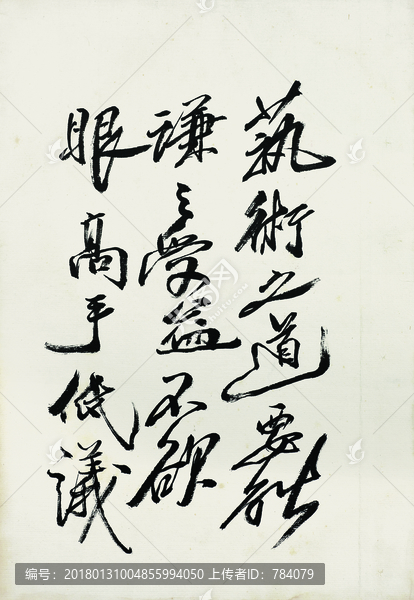 藝術之道要能
謙々受益不欲
眼高手低議
编号：20180131004855994050 上传者ID：784079